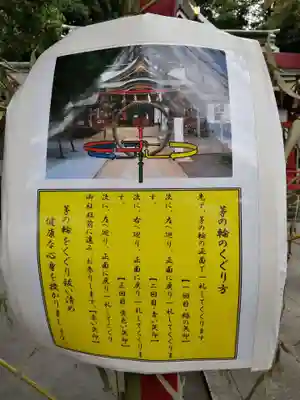 茅の輪のくぐり方
先ず、茅の輪の正面で一礼してくぐります
【一回目・緑の矢印】
次に、左へ廻り、正面に戻り一礼してくぐります。
【二回目・青い矢印】
次に、右へ廻り、正面に戻り一礼してくぐります。
【三回目・黄色い矢印】
次に、左へ廻り、正面に戻り一礼してくぐり
御社殿前に進み、お参りします。【赤い矢印】
茅の輪をくぐり祓い清め
健康な心身を授かりましょう